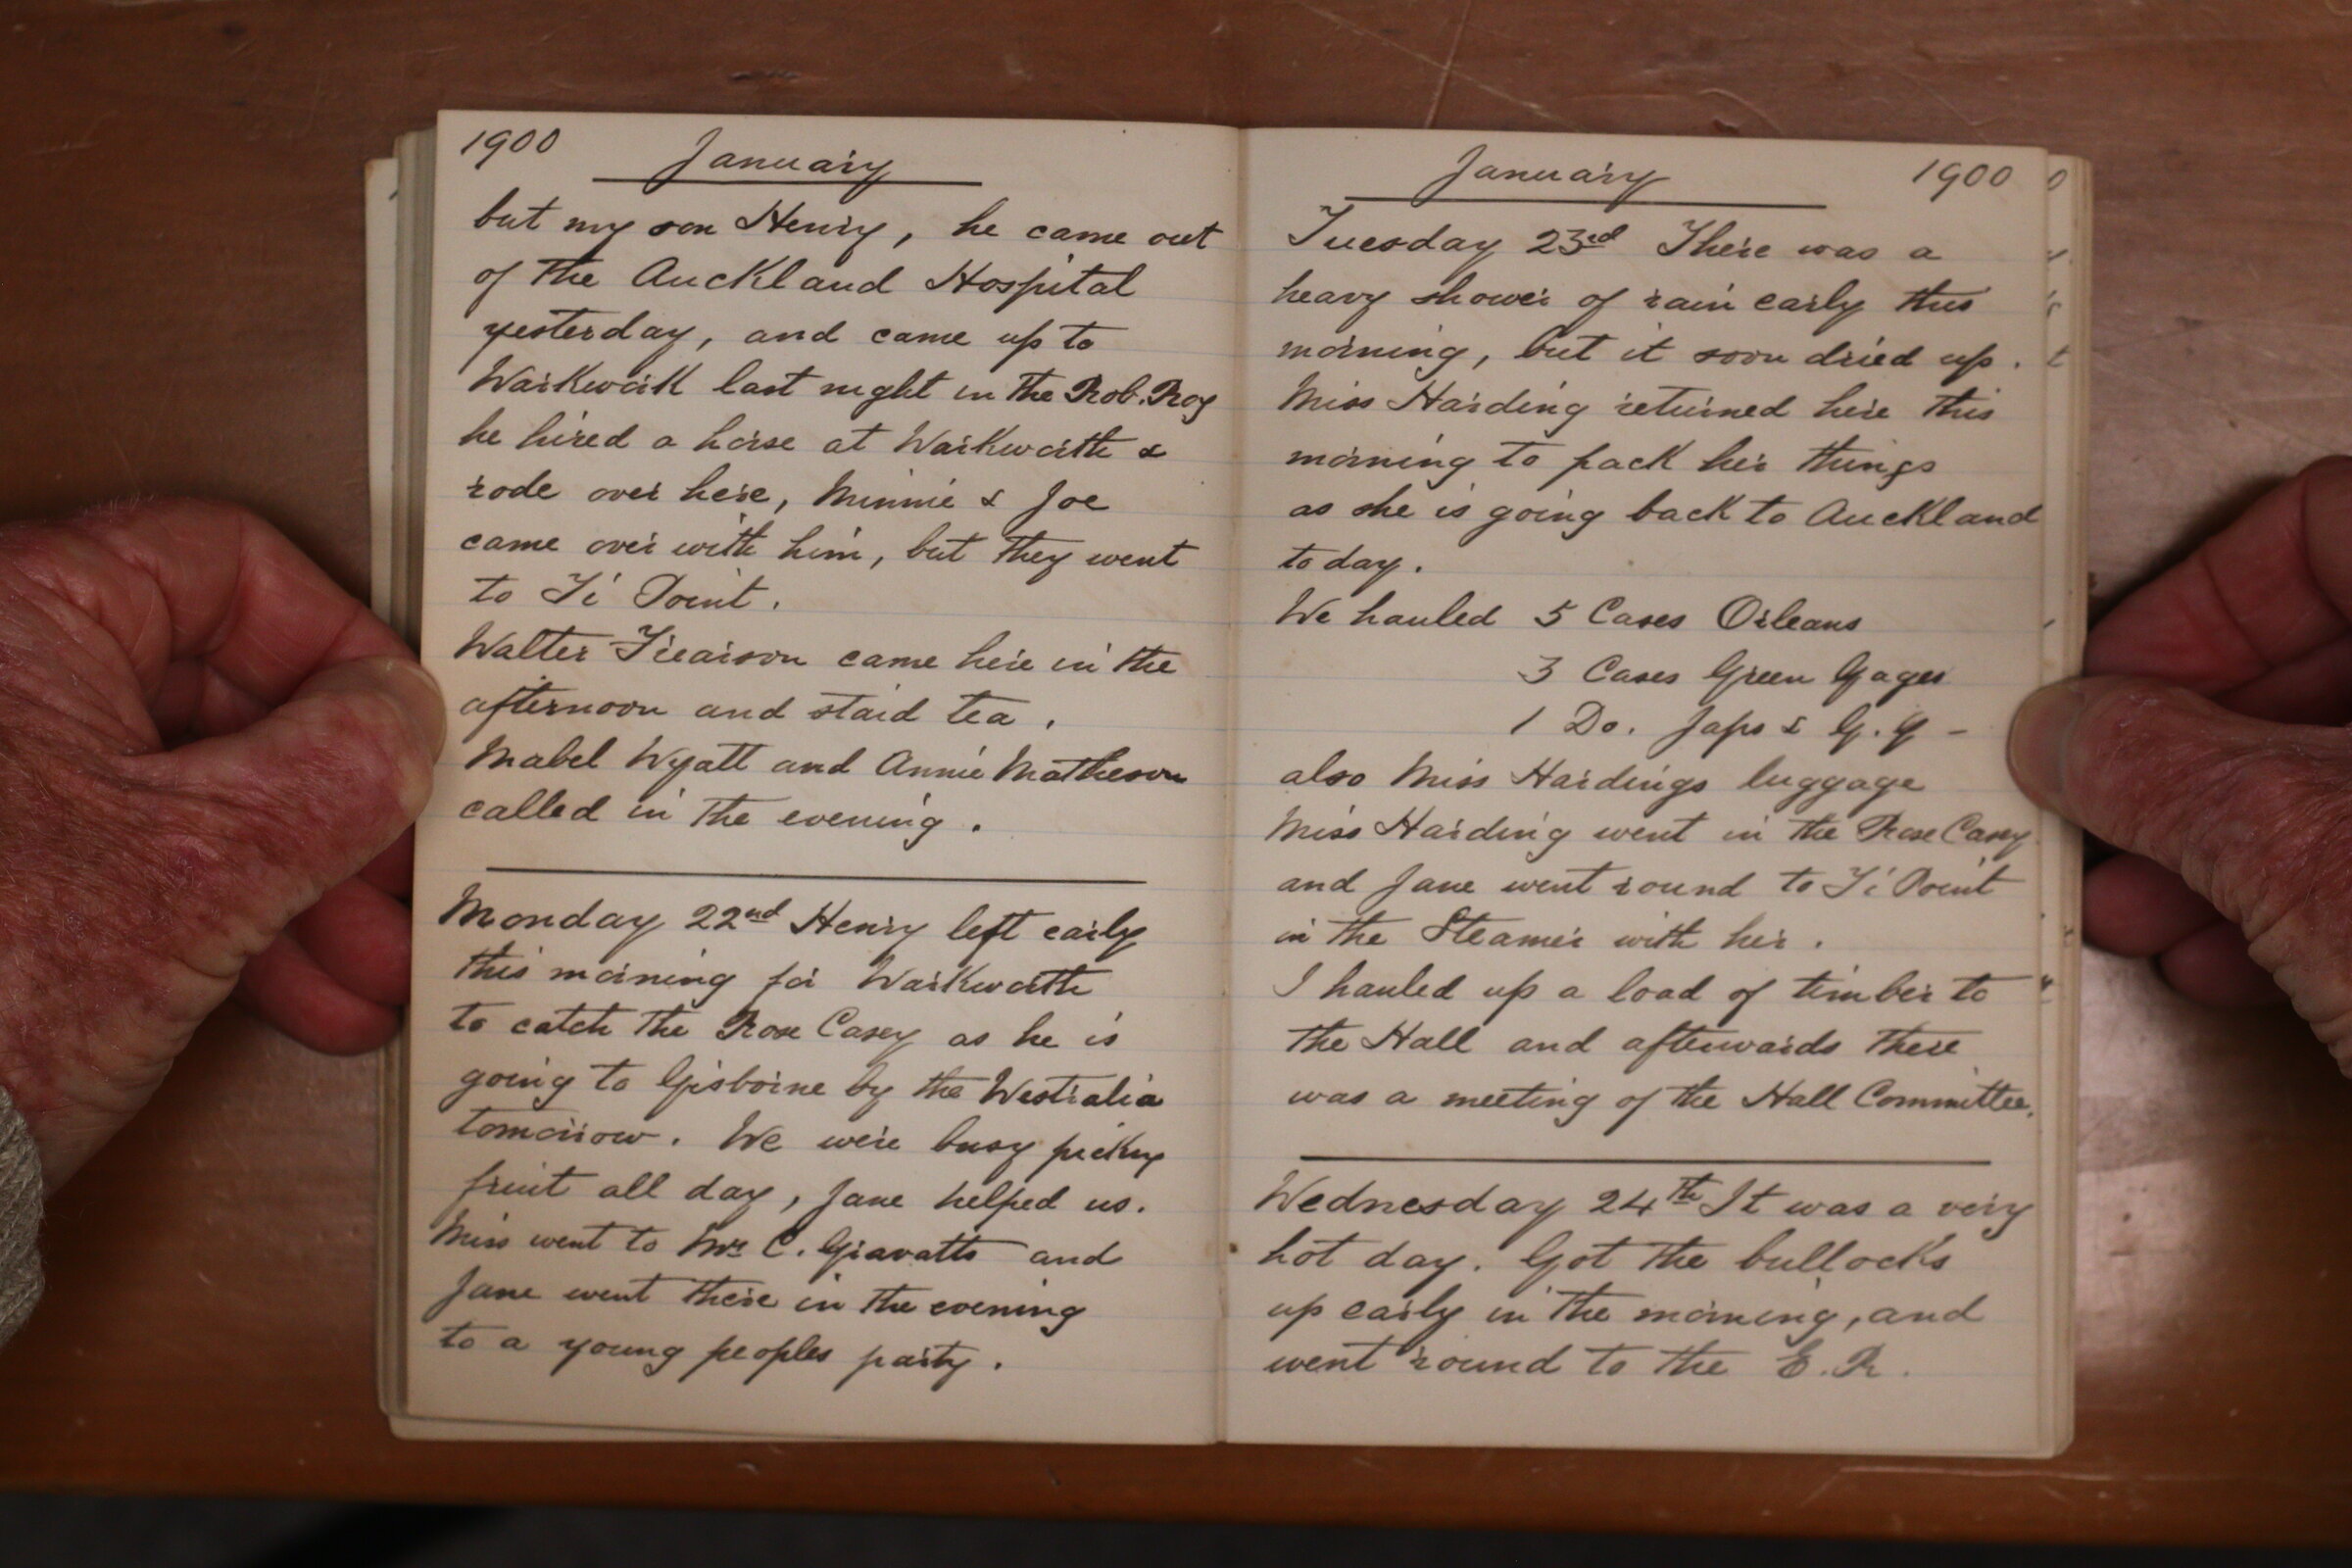 1900
January
but my son Henry, he came out
of the Auckland Hospital
yesterday, and came up to
Warkwork last night in the Rob. Roy
he hired a horse at Warkworth &
rode over here, Minnie & Joe
came over with him, but they went
to Ti Point.
Walter came here in the
afternoon and staid tea.
Mabel Wyatt and Annie Matheson
called in the evening.
Monday 22nd Henry left early
this morning for Warkworth
to catch the Rose Casey as he is
going to Gisborne by the Westralia
tomorrow. We were busy picking
fruit all day, Jane helped us.
Miss went to Mrs C. Gravatts and
Jane went there in the evening
to a young peoples party.
January 1900
Tuesday 23rd There was a
heavy shower of rain early this
morning, but it soon dried up.
Miss Harding returned here this
morning to pack her things
as she is going back to Auckland
to day.
We hauled 5 Cases Orleans
3 Cases Green Gages
1 Do. Japs & G. G -
also Miss Hardings luggage
Miss Harding went in the Rose Casey
and Jane went round to Ti Point
in the Steamer with her.
I hauled up a load of timber to
the Hall and afterwards there
was a meeting of the Hall Committee.
Wednesday 24th It was a very
hot day. Got the bullocks
up early in the morning, and
went round to the E. R.